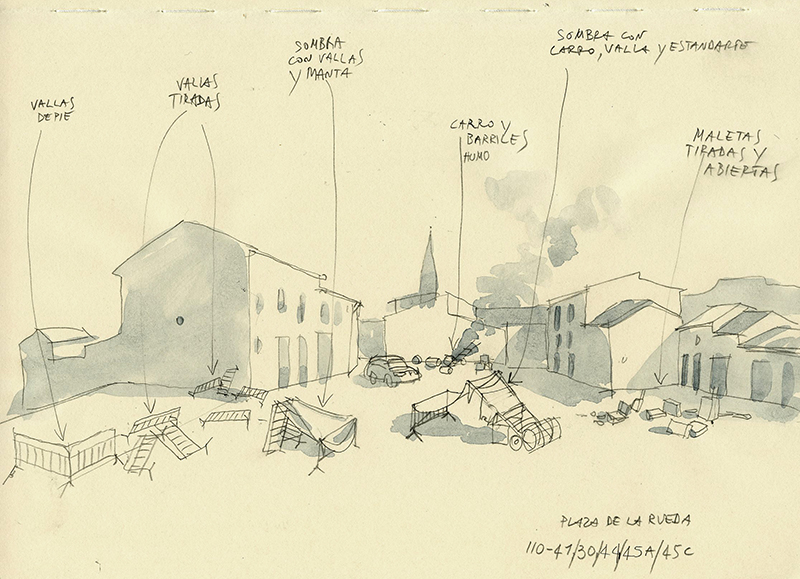 VALLAS
DE PIE
VALLAS
TIRADAS
SOMBRA
CON VALLAS
Y MANTA
CARRO Y
BARRILES
HUMO
SOMBRA CON
CARRO, VALLA Y ESTANDARTE
MALETAS
TIRADAS Y
ABIERTAS
PLAZA DE LA RUEDA
110-41/30/44/45A/45C